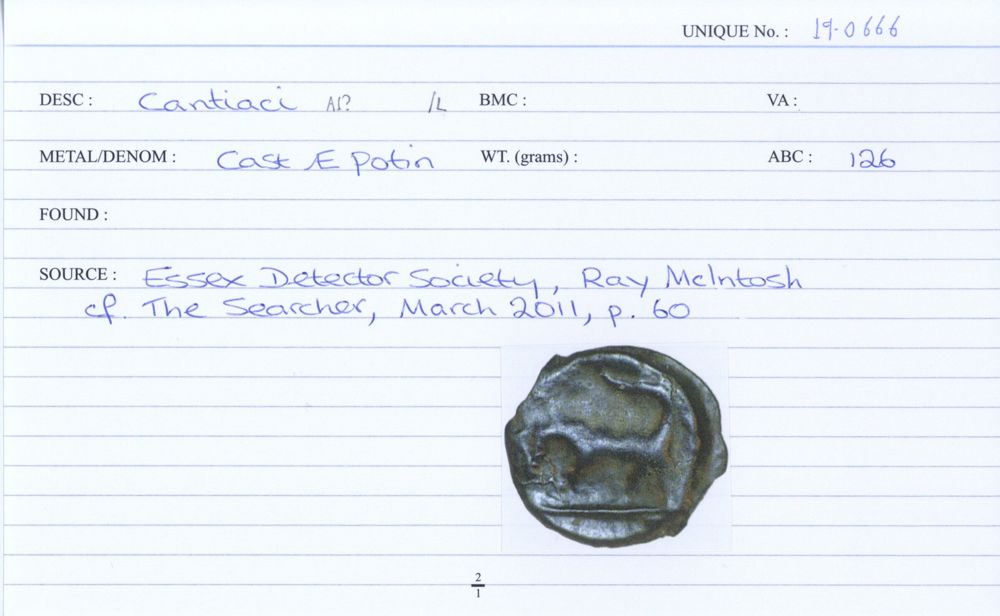 UNIQUE No. : 19-0666
DESC : Cantiaci A1? /L BMC : VA :
METAL/DENOM : Cast Æ Potin WT. (grams) : ABC : 126
FOUND :
SOURCE : Essex Detector Society, Ray McIntosh
cf. The Searcher, March 2011, p. 60
2
1